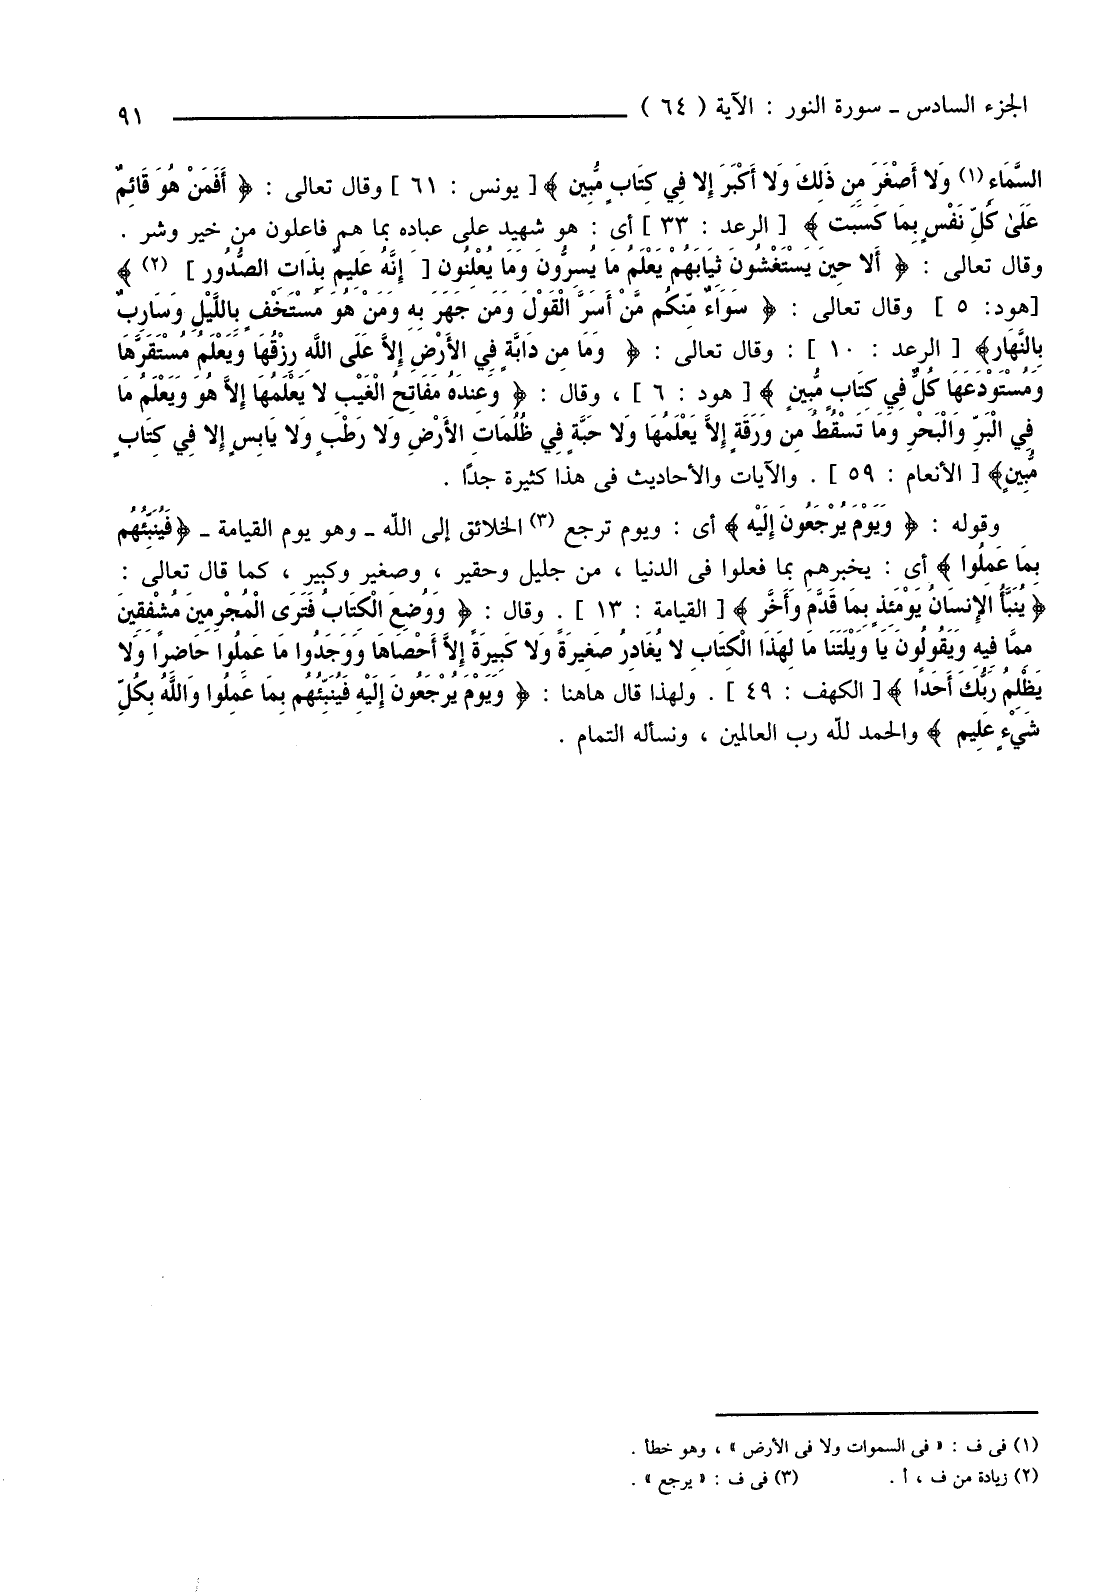 الجزء السادس ـ سورة النور : الآية ( ٦٤ ) ٩١
السَّمَاءِ (١) وَلا أَصْغَرَ مِن ذَلِكَ وَلا أَكْبَرَ إِلا فِي كِتَابٍ مُّبِينٍ ﴾ [ يونس : ٦١ ] وقال تعالى : ﴿ أَفَمَنْ هُوَ قَائِمٌ
عَلَىٰ كُلِّ نَفْسٍ بِمَا كَسَبَت ﴾ [ الرعد : ٣٣ ] أى : هو شهيد على عباده بما هم فاعلون من خير وشر .
وقال تعالى : ﴿ أَلا حِينَ يَسْتَغْشُونَ ثِيَابَهُمْ يَعْلَمُ مَا يُسِرُّونَ وَمَا يُعْلِنُون [ إِنَّهُ عَلِيمٌ بِذَاتِ الصُّدُور ] (٢) ﴾
[هود: ٥ ] وقال تعالى : ﴿ سَوَاءٌ مِّنكُم مَّنْ أَسَرَّ الْقَوْلَ وَمَن جَهَرَ بِهِ وَمَنْ هُوَ مُسْتَخْفٍ بِاللَّيْلِ وَسَارِبٌ
بِالنَّهَار﴾ [ الرعد : ١٠ ] : وقال تعالى : ﴿ وَمَا مِن دَابَّةٍ فِي الأَرْضِ إِلاَّ عَلَى اللَّهِ رِزْقُهَا وَيَعْلَمُ مُسْتَقَرَّهَا
وَمُسْتَوْدَعَهَا كُلٌّ فِي كِتَابٍ مُّبِينٍ ﴾ [ هود : ٦ ] ، وقال : ﴿ وَعِندَهُ مَفَاتِحُ الْغَيْبِ لا يَعْلَمُهَا إِلاَّ هُوَ وَيَعْلَمُ مَا
فِي الْبَرِّ وَالْبَحْرِ وَمَا تَسْقُطُ مِن وَرَقَةٍ إِلاَّ يَعْلَمُهَا وَلا حَبَّةٍ فِي ظُلُمَاتِ الأَرْضِ وَلا رَطْبٍ وَلا يَابِسٍ إِلا فِي كِتَابٍ
مُّبِينٍ﴾ [ الأنعام : ٥٩ ] . والآيات والأحاديث فى هذا كثيرة جدًا .
وقوله : ﴿ وَيَوْمَ يُرْجَعُونَ إِلَيْهِ ﴾ أى : ويوم ترجع (٣) الخلائق إلى الله ـ وهو يوم القيامة ـ ﴿فَيُنَبِّئُهُم
بِمَا عَمِلُوا ﴾ أى : يخبرهم بما فعلوا فى الدنيا ، من جليل وحقير ، وصغير وكبير ، كما قال تعالى :
﴿ يُنَبَّأُ الإِنسَانُ يَوْمَئِذٍ بِمَا قَدَّمَ وَأَخَّر ﴾ [ القيامة : ١٣ ] . وقال : ﴿ وَوُضِعَ الْكِتَابُ فَتَرَى الْمُجْرِمِينَ مُشْفِقِينَ
مِمَّا فِيهِ وَيَقُولُونَ يَا وَيْلَتَنَا مَا لِهَذَا الْكِتَابِ لا يُغَادِرُ صَغِيرَةً وَلا كَبِيرَةً إِلاَّ أَحْصَاهَا وَوَجَدُوا مَا عَمِلُوا حَاضِراً وَلا
يَظْلِمُ رَبُّكَ أَحَدًا ﴾ [ الكهف : ٤٩ ] . ولهذا قال هاهنا : ﴿ وَيَوْمَ يُرْجَعُونَ إِلَيْهِ فَيُنَبِّئُهُم بِمَا عَمِلُوا وَاللَّهُ بِكُلِّ
شَيْءٍ عَلِيم ﴾ والحمد لله رب العالمين ، ونسأله التمام .
(١) فى ف : « فى السموات ولا فى الأرض » ، وهو خطأ .
(٢) زيادة من ف ، أ . (٣) فى ف : « يرجع » .